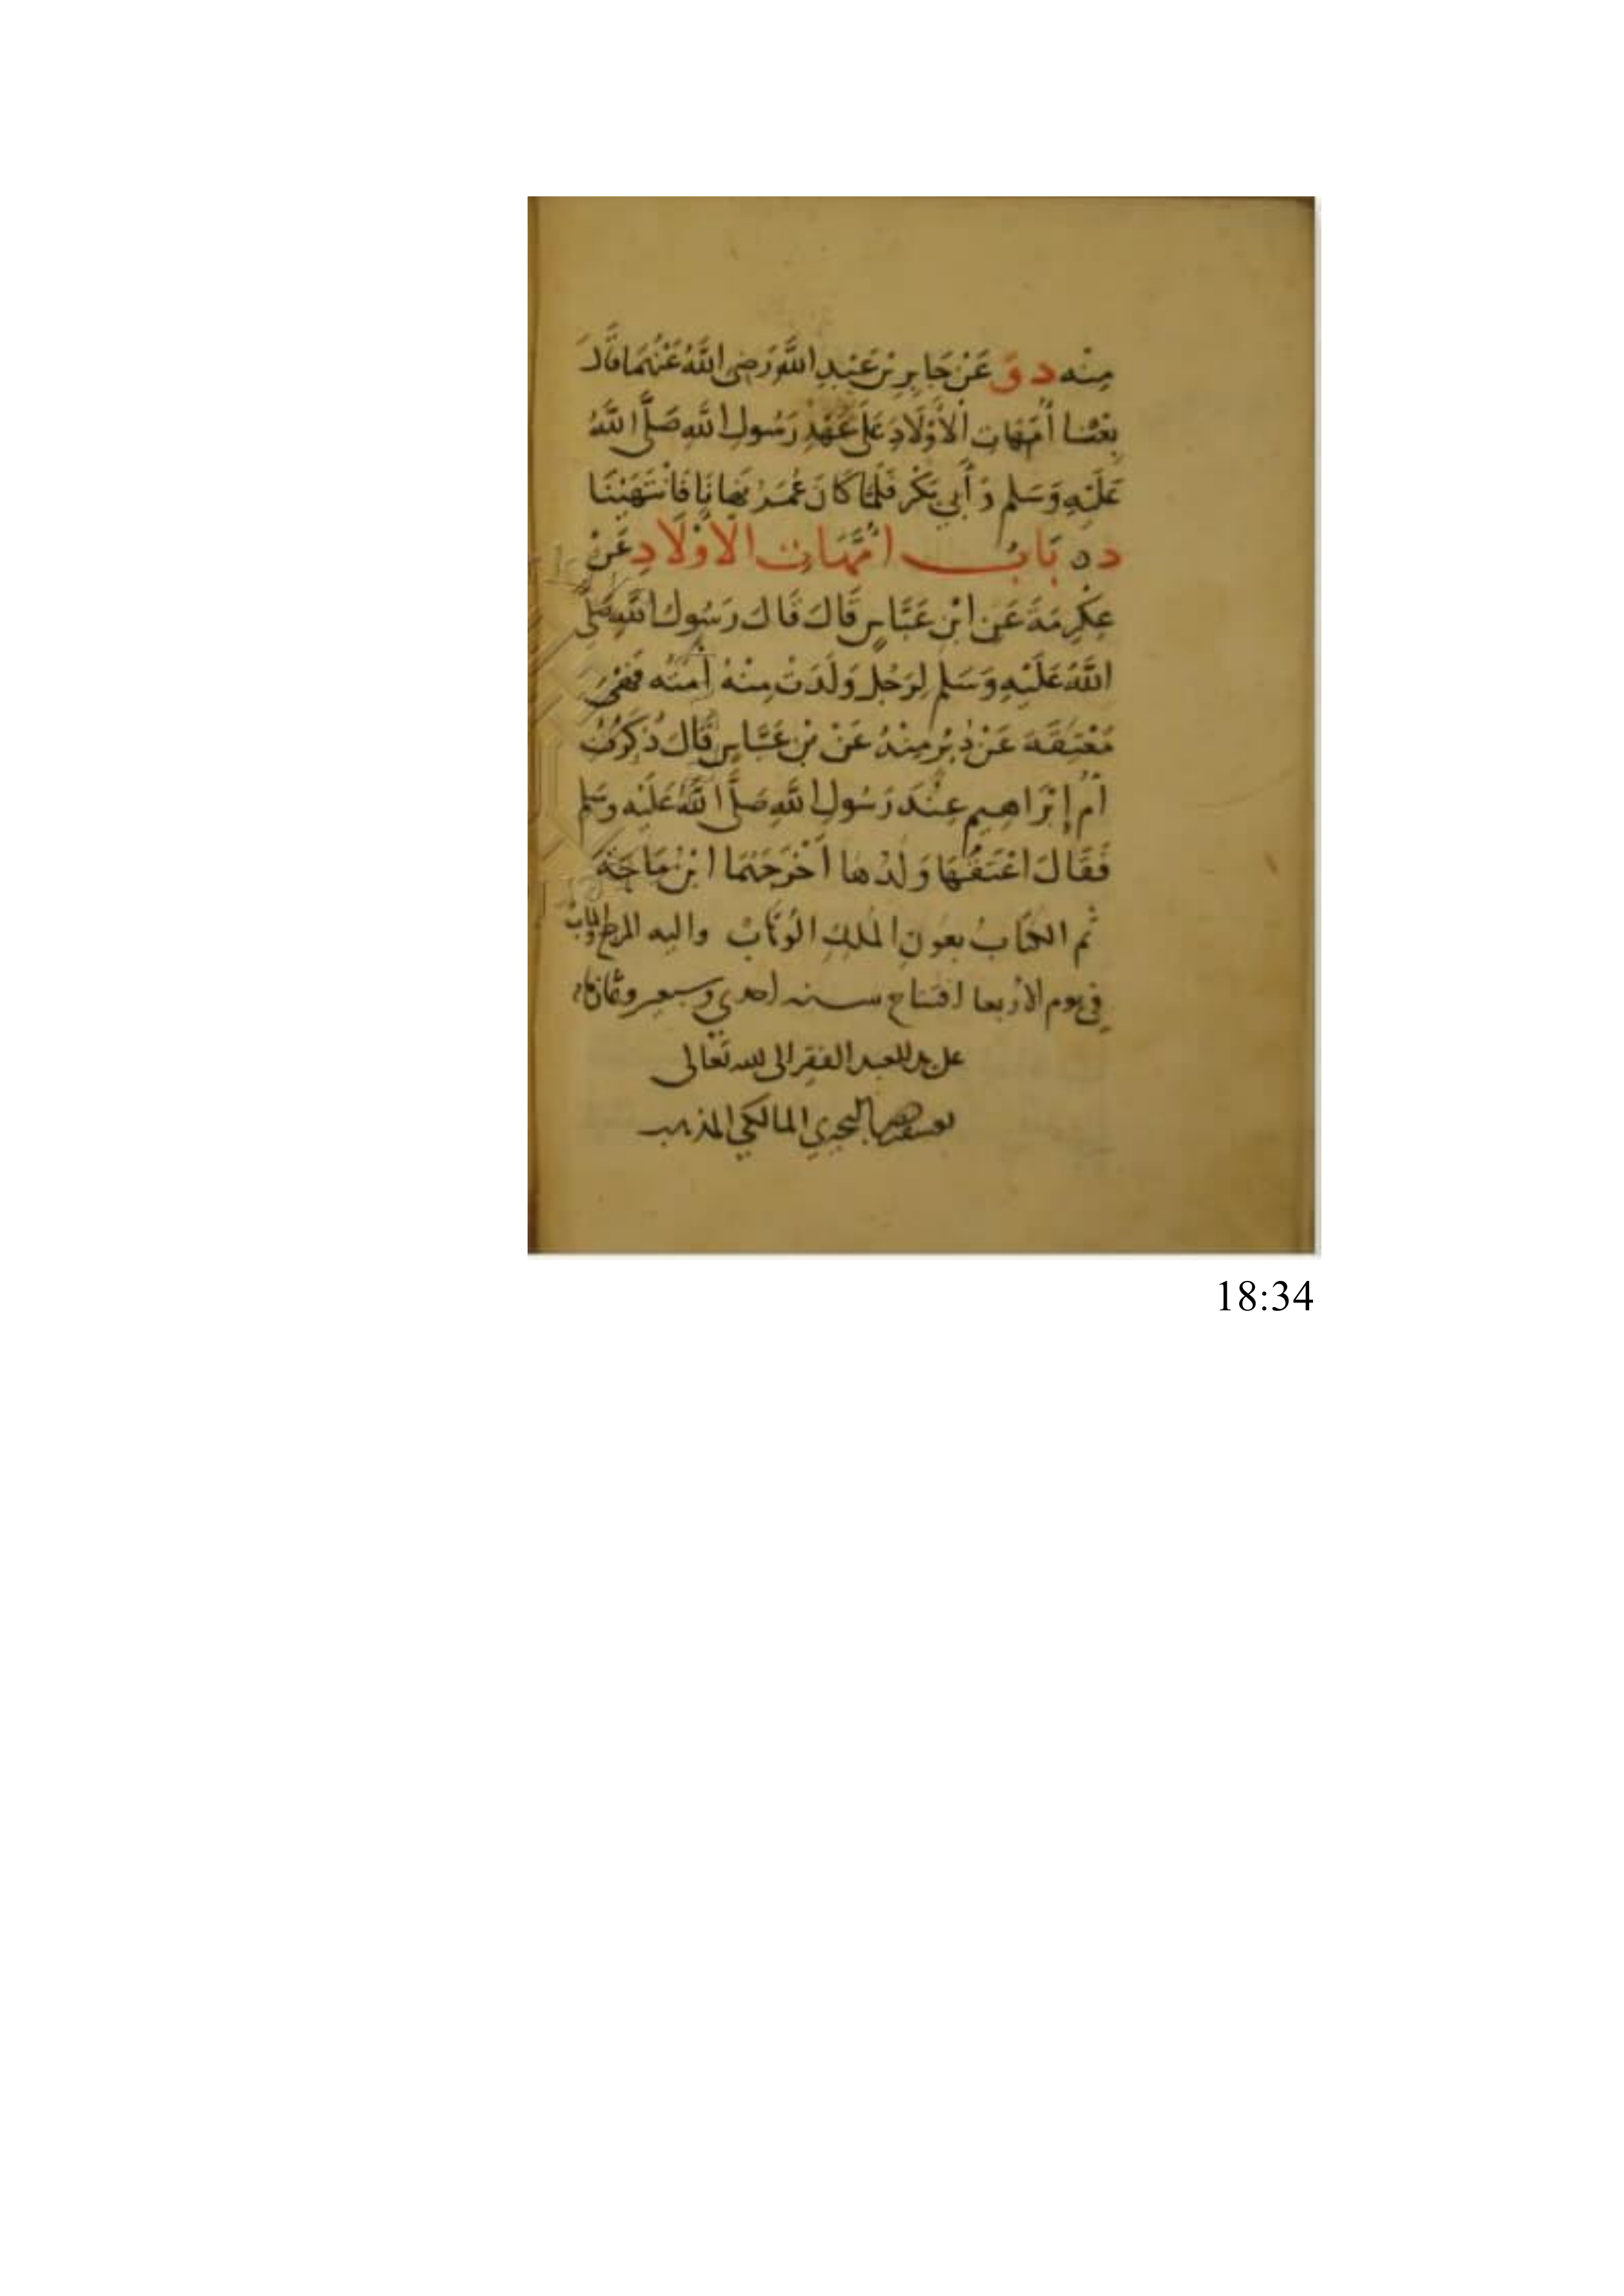 مِنْه د ق عَنْ جَابِرِ بْنِ عَبْدِ اللَّهِ رَضِيَ اللَّهُ عَنْهُمَا قَالَ
بِعْنَا أُمَّهَاتِ الْأَوْلَادِ عَلَى عَهْدِ رَسُولِ اللَّهِ صَلَّى اللَّهُ
عَلَيْهِ وَسَلم وَأَبِي بَكْرٍ فَلَمَّا كَانَ عُمَرُ نَهَانَا فَانْتَهَيْنَا
د ه بَابُ أُمَّهَاتِ الْأَوْلَادِ عَنْ
عِكْرِمَةَ عَنِ ابْنِ عَبَّاسٍ قَالَ قَالَ رَسُولُ اللَّهِ صَلَّى
اللَّهُ عَلَيْهِ وَسَلم لِرَجُلٍ وَلَدَتْ مِنْهُ أَمَتُه فَهْيَ
مُعْتِقَة عَنْ دُبُرٍ مِنْهُ عَنْ بْنِ عَبَّاسٍ قَالَ ذُكِرَتْ
أُمُّ إِبْرَاهِيم عِنْدَ رَسُولِ اللَّهِ صَلَّى اللَّهُ عَلَيْهِ وَسلم
فَقَالَ اعْتَقَهَا وَلَدُها أَخْرَجَهُمَا ابْنُ مَاجَةَ
تم الكتابُ بعونِ الملكِ الوَهَّابْ واليه المرجع والمآبْ
في يوم الأربعا افتتاح سنه احدي وسبعين وثمانمايه
على يد العبد الفقير الى الله تعَالى
البحيري المالكي المذهب
18:34